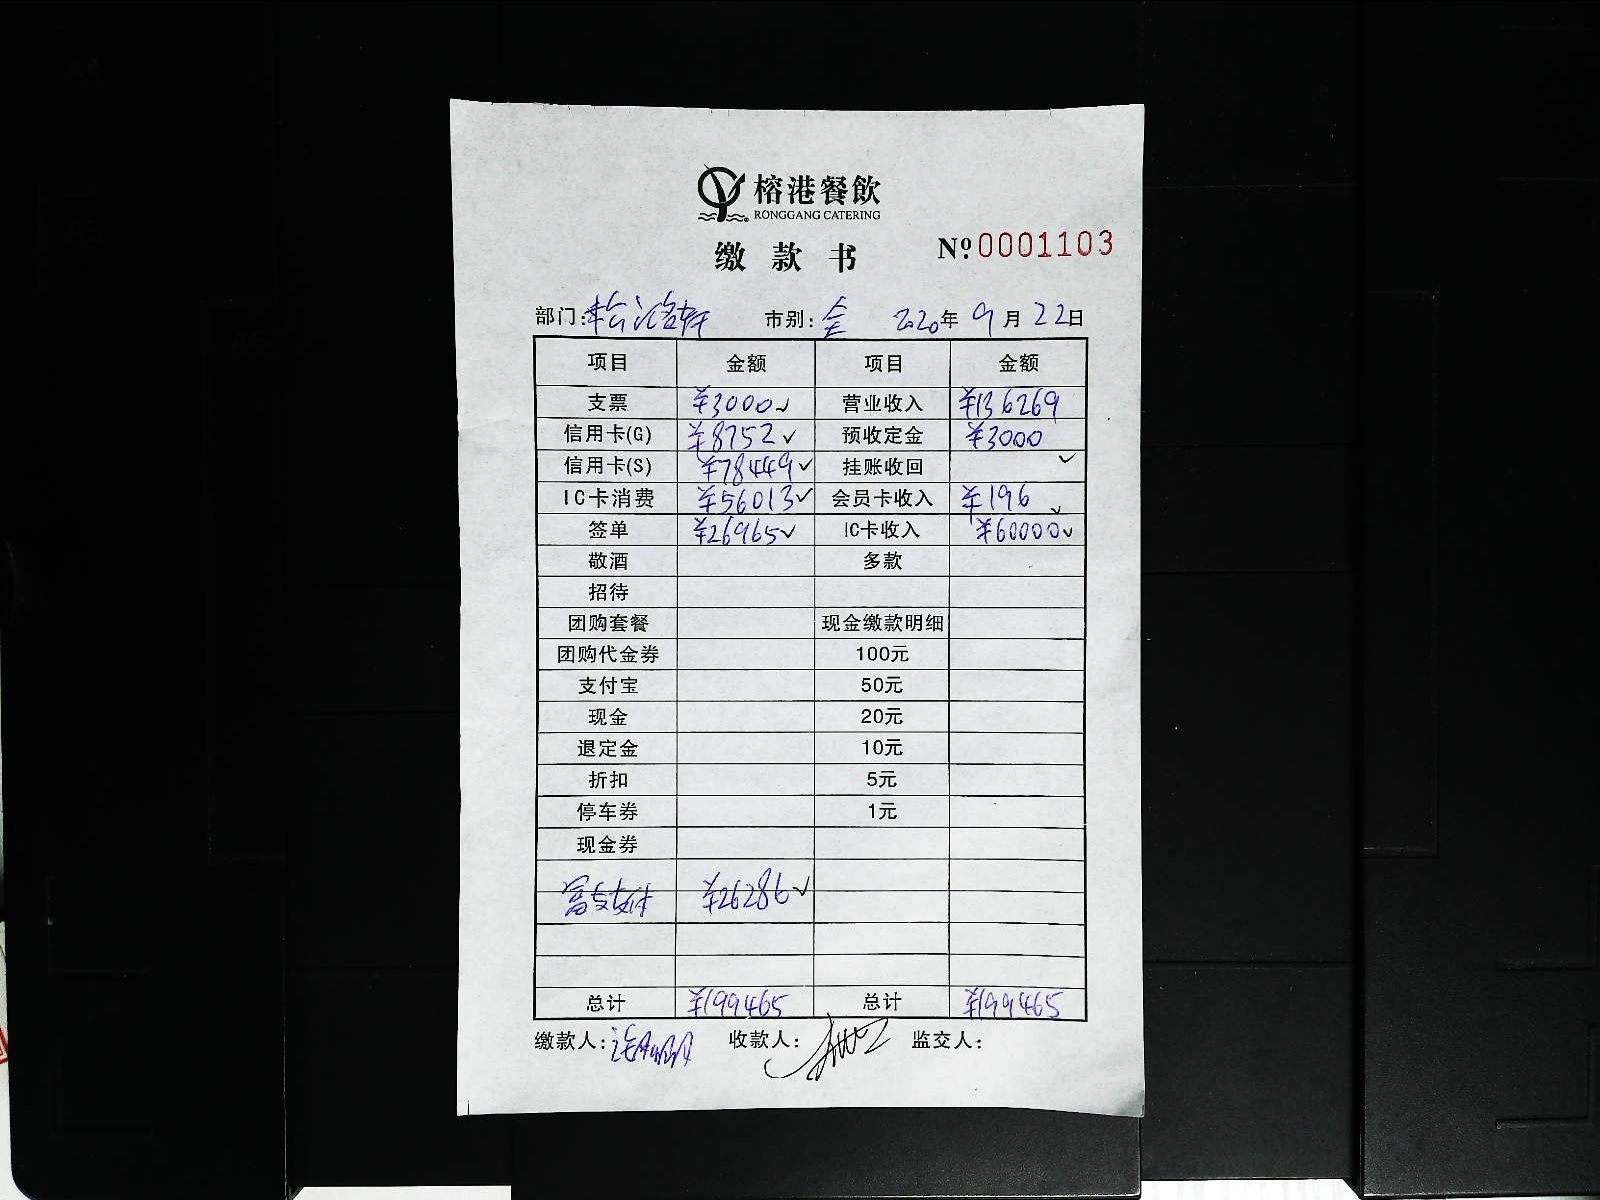 榕港餐飲
RONGGANG CATERING
缴款书 №0001103
部门: 市别:全 2020年9月22日
项目 金额 项目 金额
支票 ¥3000 营业收入 ¥136269
信用卡(G) ¥8752 预收定金 ¥3000
信用卡(S) ¥78449 挂账收回
IC卡消费 ¥56013 会员卡收入 ¥196
签单 ¥26965 IC卡收入 ¥60000
敬酒 多款
招待
团购套餐 现金缴款明细
团购代金券 100元
支付宝 50元
现金 20元
退定金 10元
折扣 5元
停车券 1元
现金券
¥26286
总计 ¥199465 总计 ¥199465
缴款人: 收款人: 监交人: